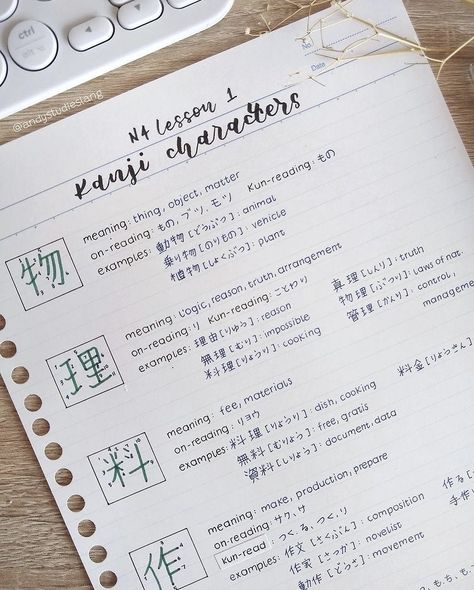 ctrl
alt
@andystudieslang
No.
Date
N4 lesson 1
Kanji characters
物
meaning: thing, object, matter
on-reading: もの, ブツ, モツ Kun-reading: もの
examples: 動物 [どうぶつ]: animal
乗り物 [のりもの]: vehicle
植物 [しょくぶつ]: plant
理
meaning: logic, reason, truth, arrangement
on-reading: リ Kun-reading: ことわり
examples: 理由 [りゆう]: reason
無理 [むり]: impossible
料理 [りょうり]: cooking
真理 [しんり]: truth
物理 [ぶつり]: laws of nat
管理 [かんり]: control,
manageme
料
meaning: fee, materials
on-reading: リョウ
examples: 料理 [りょうり]: dish, cooking
無料 [むりょう]: free, gratis
資料 [しりょう]: document, data
料金 [りょうきん]
作
meaning: make, production, prepare
on-reading: サク, サ
Kun-read つく.る, つく.り
examples: 作文 [さくぶん]: composition
作家 [さっか]: novelist
動作 [どうさ]: movement
作る [
手作